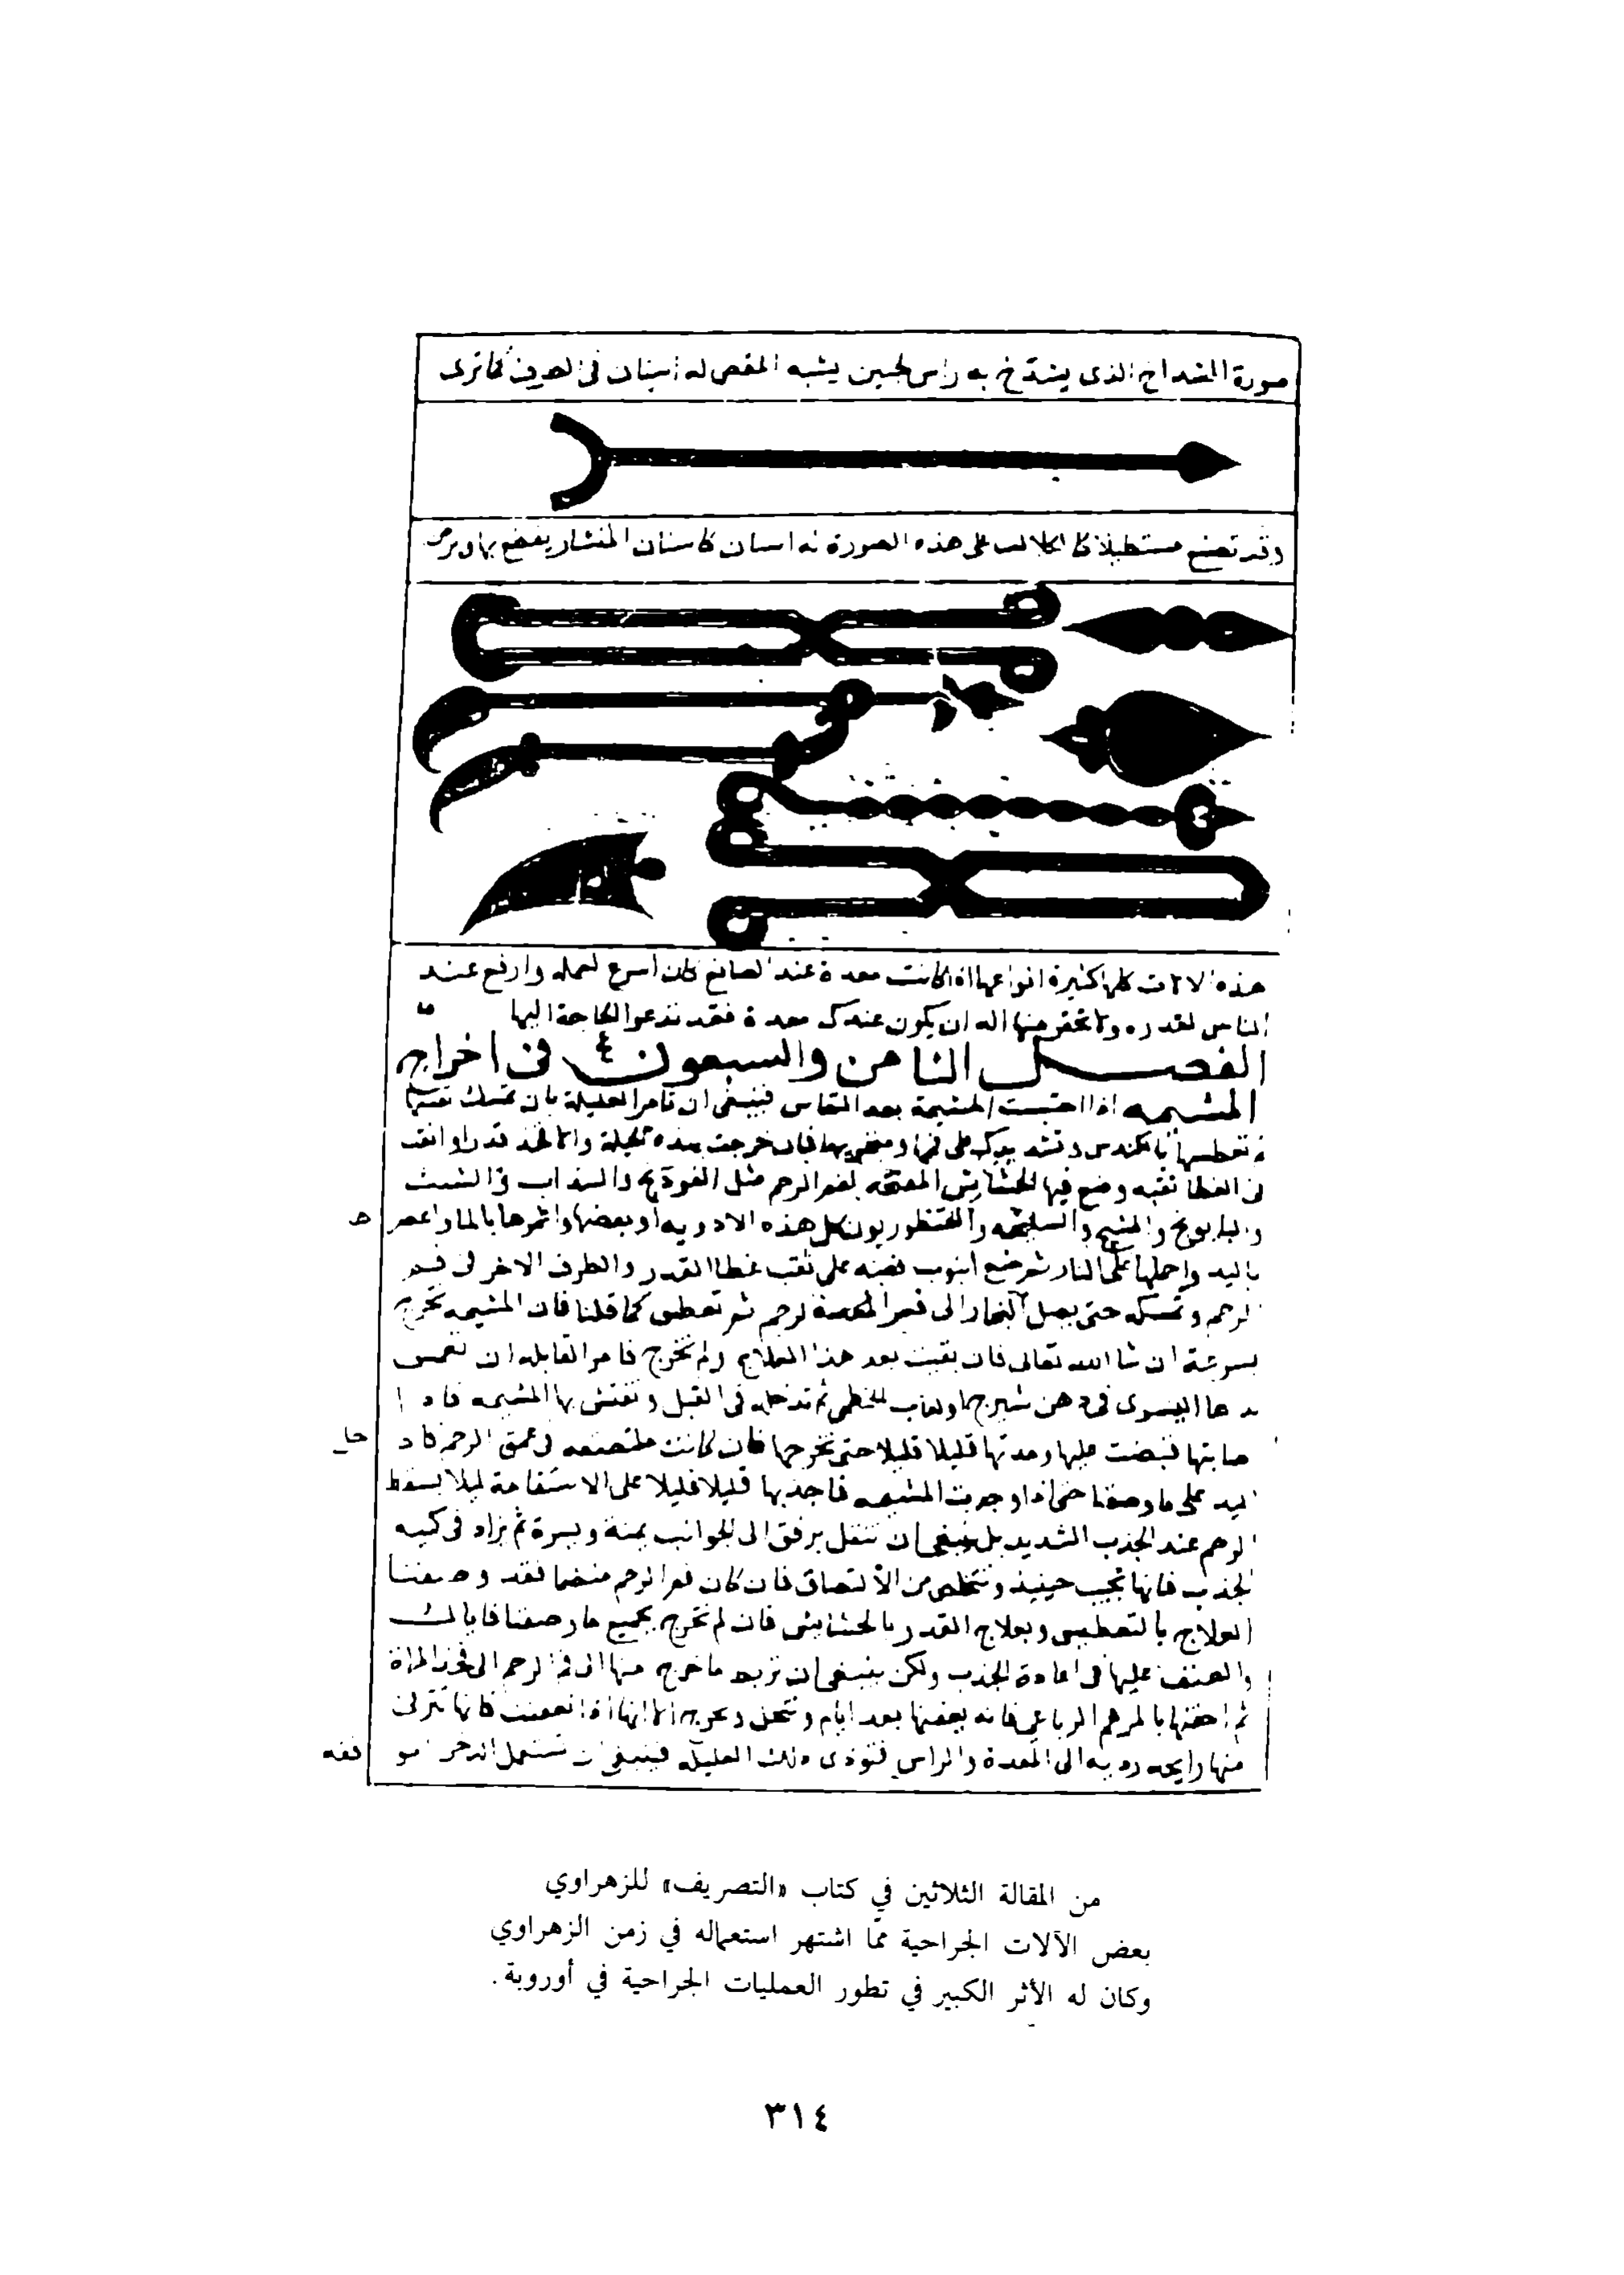 صورة المشداخ الذى يشدّخ به راس الجنين يشبه المقص له اسنان فى الطرف كما ترى
وقد تصنع مستطيلا كا الكلاليب على هذه الصورة له اسنان كاسنان المنشار يقطع بها ويرض
هذه الالات كلها كثيرة انواعها اذا كانت معدة عند الصانع كان اسرع لعمله وارفع عند
الناس لقدره ولا تحقر منها اله ان يكون عندك معدة فقد تدعوا الحاجة اليها
الفصل الثامن والسبعون فى اخراج
المشيمه اذا احتبست المشيمة بعد النفاس فينبغى ان تامر العليلة بان تمسك نفسها
تعطسها بالكندس وتشد يدك على فمها ومنخريها فان خرجت بهذه والا فخذ قدرا واثقب
فى الغطا ثقبه وضع فيها الحشايش المفتحه لفم الرحم مثل الفوذنج والسذاب والشبث
والبابونج والشيح والسليخه والقنطوريون كل هذه الادويه او بعضها واغمرها بالما واعصر
باليد واحملها على النار ثم ضع انبوب قصبه على ثقب غطا القدر والطرف الاخر فى فم
الرحم وتمسكه حتى يصل البخار الى قعر الرحم ثم تعطس كما قلنا فان المشيمه تخرج
بسرعة ان شا الله تعالى فان بقيت بعد هذا العلاج ولم تخرج فامر القابله ان تغمس
يدها اليسرى فى دهن شيرج او لعاب الخطمى ثم تدخله فى القبل وتفتش بها المشيمه فاذا
اصابتها قبضت عليها ومدتها قليلا قليلا حتى تخرجها فان كانت ملتصقه فى عمق الرحم فاد
اليد على ما وصفنا حتى اذا وجدت المشيمه فاجذبها قليلا قليلا على الاستقامة ليلا يسقط
الرحم عند الجذب الشديد بل ينبغى ان تنقل برفق الى الجوانب يمنة ويسرة ثم يزاد فى كميه
الجذب فانها تجيب حينيذ وتتخلص من الالتصاق فان كان فم الرحم منضما فقد وصفنا
العلاج بالتعطيس وبعلاج القدر بالحشايش فان لم تخرج بجميع ما وصفنا فاياك
والعنف عليها فى اعادة الجذب ولكن ينبغى ان تربط ما خرج منها الى فم الرحم الى فخذ المراة
ثم احقنها بالمرهم الرباعى فانه يعفنها بعد ايام وتتحل وتخرج الا انها اذا تعفنت فانها تترقى
منها رايحه رديه الى المعدة والراس فتوذى ذلك العليله فينبغى ان تستعمل
من المقالة الثلاثين في كتاب «التصريف» للزهراوي
بعض الآلات الجراحية ممّا اشتهر استعماله في زمن الزهراوي
وكان له الأثر الكبير في تطور العمليات الجراحية في أوروبة.
٣١٤